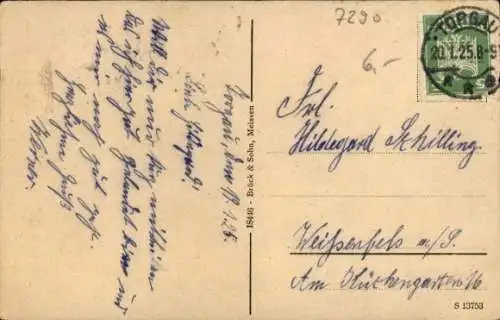 7290
6,-
TORGAU
20.1.25.8-9
Torgau, den 19.1.25.
Liebe Hildegard!
Will dir nur kurz mitteilen
das ich hier gut gelandet bin und
es mir gut geht.
Herzlichen Gruß
18446 - Brück & Sohn, Meissen
Frl.
Hildegard Schilling.
Weißenfels a/S.
Am Küchengarten 16
S 13753